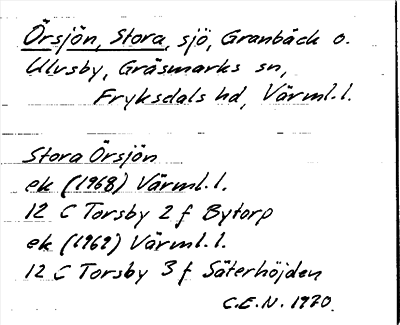 Örsjön, Stora, sjö, Granbäck o.
Ulvsby, Gräsmarks sn,
Fryksdals hd, Värml.l.
Stora Örsjön
ek (1968) Värml.l.
12 C Torsby 2 f Bytorp
ek (1969) Värml.l.
12 C Torsby 3 f Säterhöjden
C.E.N. 1970.